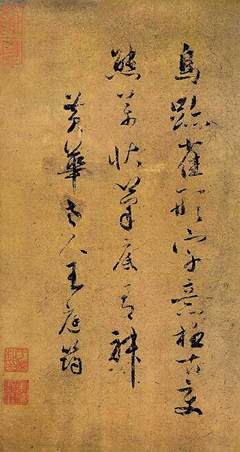 鳥跡雀形字意極古變
態萬狀筆底有神
黃華老人王庭筠